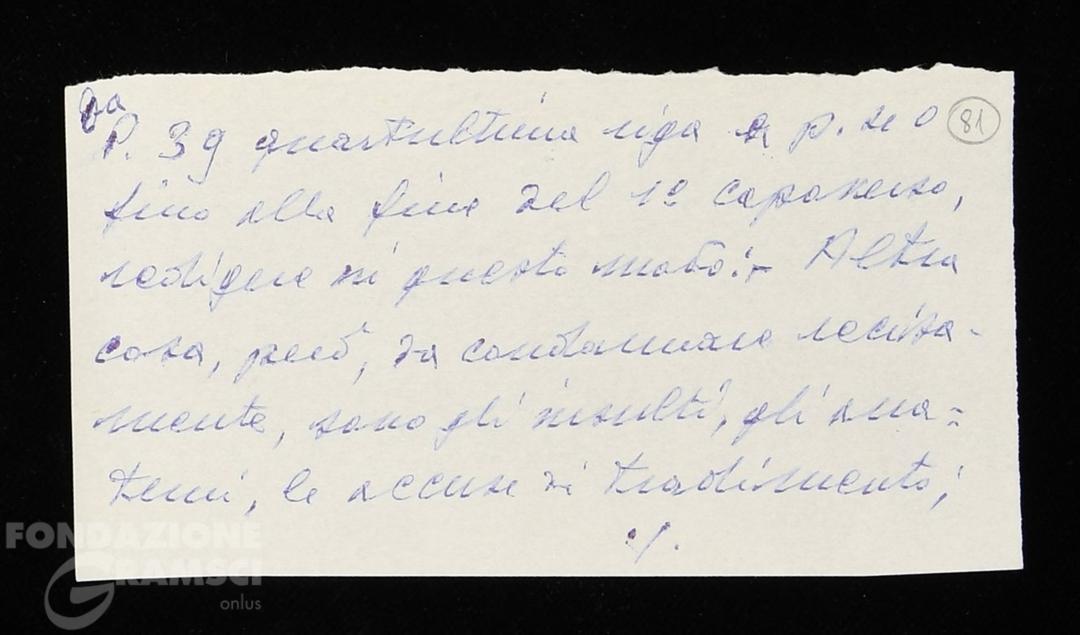 Da
P. 39 quartultima riga a p. 40
81
fino alla fine del 1º capoverso,
redigere in questo modo:- Altra
cosa, però, da condannare recisa-
mente, sono gli insulti, gli ana=
temi, le accuse di tradimento;
./.
FONDAZIONE
GRAMSCI
onlus